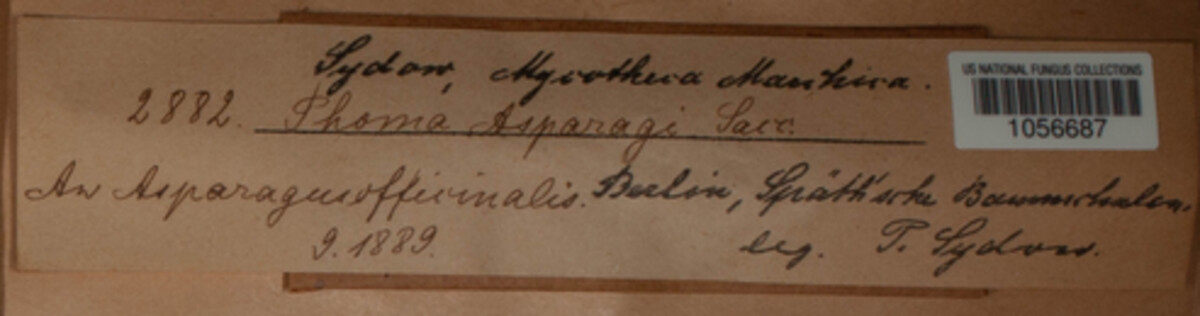 Sydow, Mycotheca Marchica.
US NATIONAL FUNGUS COLLECTIONS
1056687
2882. Phoma Asparagi Sacc.
An Asparagus officinalis. Berlin, Späth'sche Baumschulen.
9.1889. leg. P. Sydow.